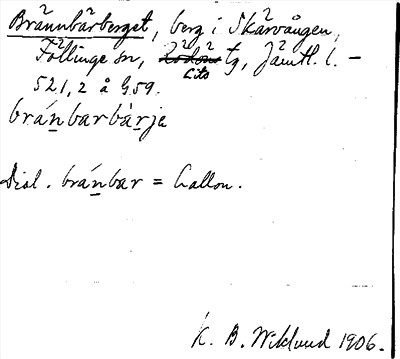 Brännbärberget, berg i Skärvången,
Föllinge sn, Lits tg, Jämtl. l. –
521,2 å G.59.
bránbarbàrje
Dial. bránbar = hallon.
K. B. Wiklund 1906.